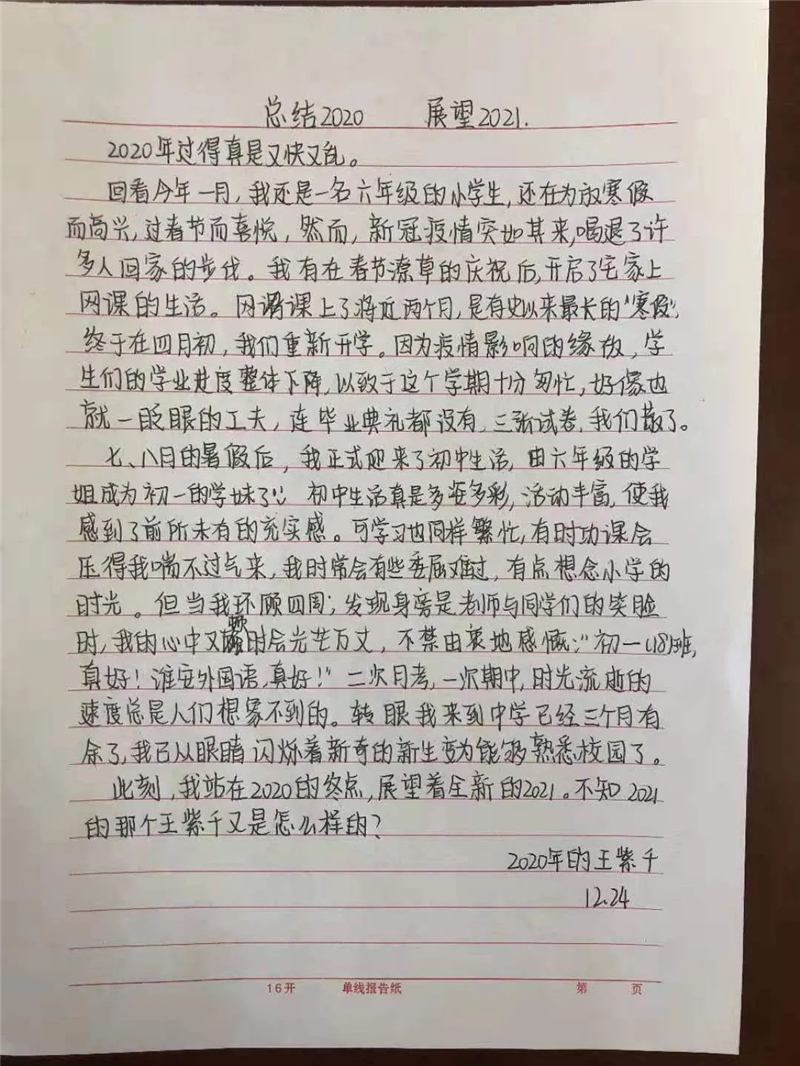 总结2020 展望2021.
2020年过得真是又快又乱。
回看今年一月,我还是一名六年级的小学生,还在为放寒假
而高兴,过春节而喜悦,然而,新冠疫情突如其来,喝退了许
多人回家的步伐。我有在春节潦草的庆祝后,开启了宅家上
网课的生活。网课上了将近两个月,是有史以来最长的“寒假”,
终于在四月初,我们重新开学。因为疫情影响的缘故,学
生们的学业进度整体下降,以致于这个学期十分匆忙,好像也
就一眨眼的工夫,连毕业典礼都没有,三张试卷,我们散了。
七、八月的暑假后,我正式迎来了初中生活,由六年级的学
姐成为初一的学妹了!初中生活真是多姿多彩,活动丰富,使我
感到了前所未有的充实感。可学习也同样繁忙,有时功课会
压得我喘不过气来,我时常会有些委屈难过,有点想念小学的
时光。但当我环顾四周,发现身旁是老师与同学们的笑脸
时,我的心中又顿时会光芒万丈,不禁由衷地感慨:“初一(18)班,
真好!淮安外国语,真好!”二次月考,一次期中,时光流逝的
速度总是人们想象不到的。转眼我来到中学已经三个月有
余了,我已从眼睛闪烁着新奇的新生变为能够熟悉校园了。
此刻,我站在2020的终点,展望着全新的2021。不知2021
的那个王紫千又是怎么样的?
2020年的王紫千
12.24
16开 单线报告纸 第 页